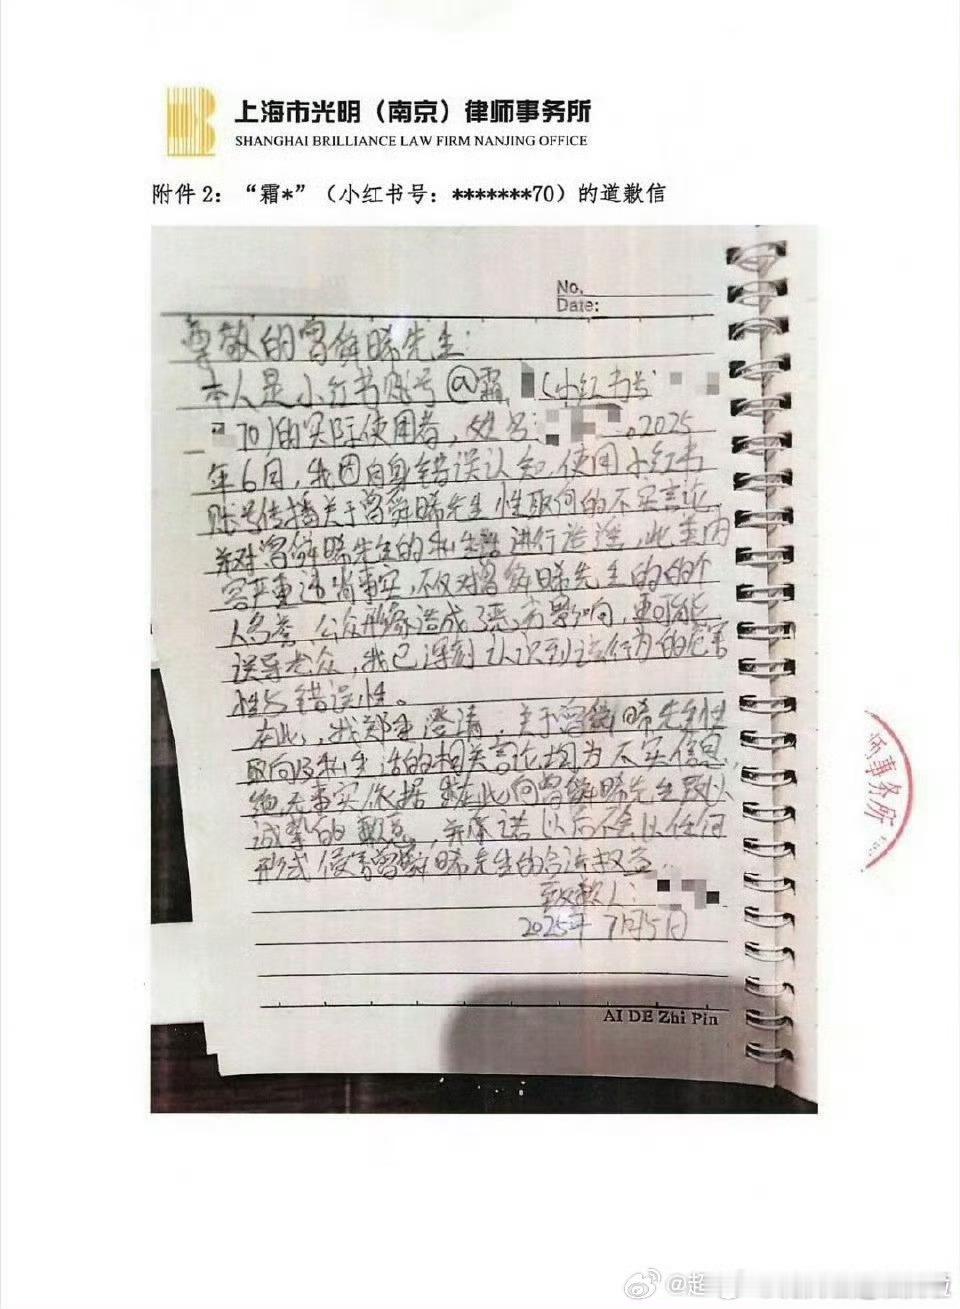 上海市光明（南京）律师事务所
SHANGHAI BRILLIANCE LAW FIRM NANJING OFFICE
附件2：“霜*”（小红书号：*******70）的道歉信
No.
Date:
尊敬的曾舜晞先生：
本人是小红书账号@霜（小红书号
70)的实际使用者，姓名：。2025
年6月，我因自身错误认知，使用小红书
账号传播关于曾舜晞先生性取向的不实言论，
并对曾舜晞先生的私生活进行造谣，此类内
容严重违背事实，不仅对曾舜晞先生的的个
人名誉、公众形象造成了恶劣影响，更可能
误导公众，我已深刻认识到该行为的危害
性与错误性。
在此，我郑重澄清，关于曾舜晞先生性
取向及私生活的相关言论均为不实信息，
绝无事实依据 我在此向曾舜晞先生致以
诚挚的歉意，并承诺以后不会以任何
形式侵害曾舜晞先生的合法权益。
致歉人：
2025年7月5日
AI DE Zhi Pin
师事务所
@超